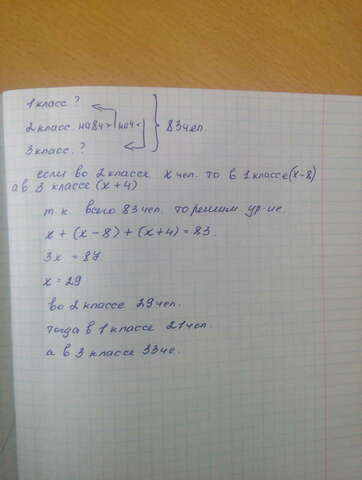 1 класс ?
2 класс. на 8ч > на 4 < } 83 чел.
3 класс. ?
если во 2 классе x чел. то в 1 классе (x-8)
а в 3 классе (x+4)
т.к. всего 83 чел. то решим ур-ие.
x + (x - 8) + (x + 4) = 83.
3x = 87
x = 29
во 2 классе 29 чел.
тогда в 1 классе 21 чел.
а в 3 классе 33 че.